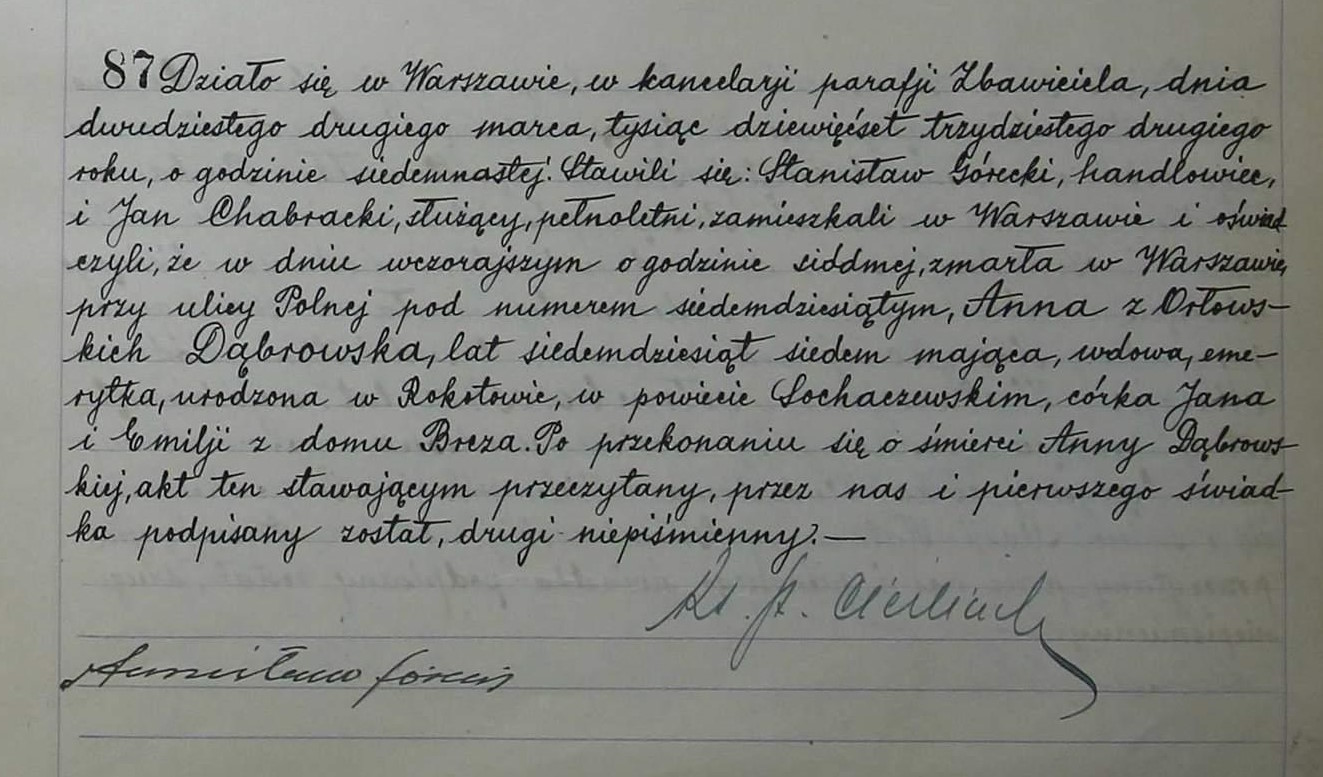 87 Działo się w Warszawie, w kancelarji parafji Zbawiciela, dnia
dwudziestego drugiego marca, tysiąc dziewięćset trzydziestego drugiego
roku, o godzinie siedemnastej. Stawili się: Stanisław Górecki, handlowiec,
i Jan Chabracki, służący, pełnoletni, zamieszkali w Warszawie i oświad
czyli, że w dniu wczorajszym o godzinie siódmej, zmarła w Warszawie,
przy ulicy Polnej pod numerem siedemdziesiątym, Anna z Orłows-
kich Dąbrowska, lat siedemdziesiąt siedem mająca, wdowa, eme-
rytka, urodzona w Rokotowie, w powiecie Sochaczewskim, córka Jana
i Emilji z domu Breza. Po przekonaniu się o śmierci Anny Dąbrows-
kiej, akt ten stawającym przeczytany, przez nas i pierwszego świad-
ka podpisany został, drugi niepiśmienny. —
Ks.
Stanisław Górecki